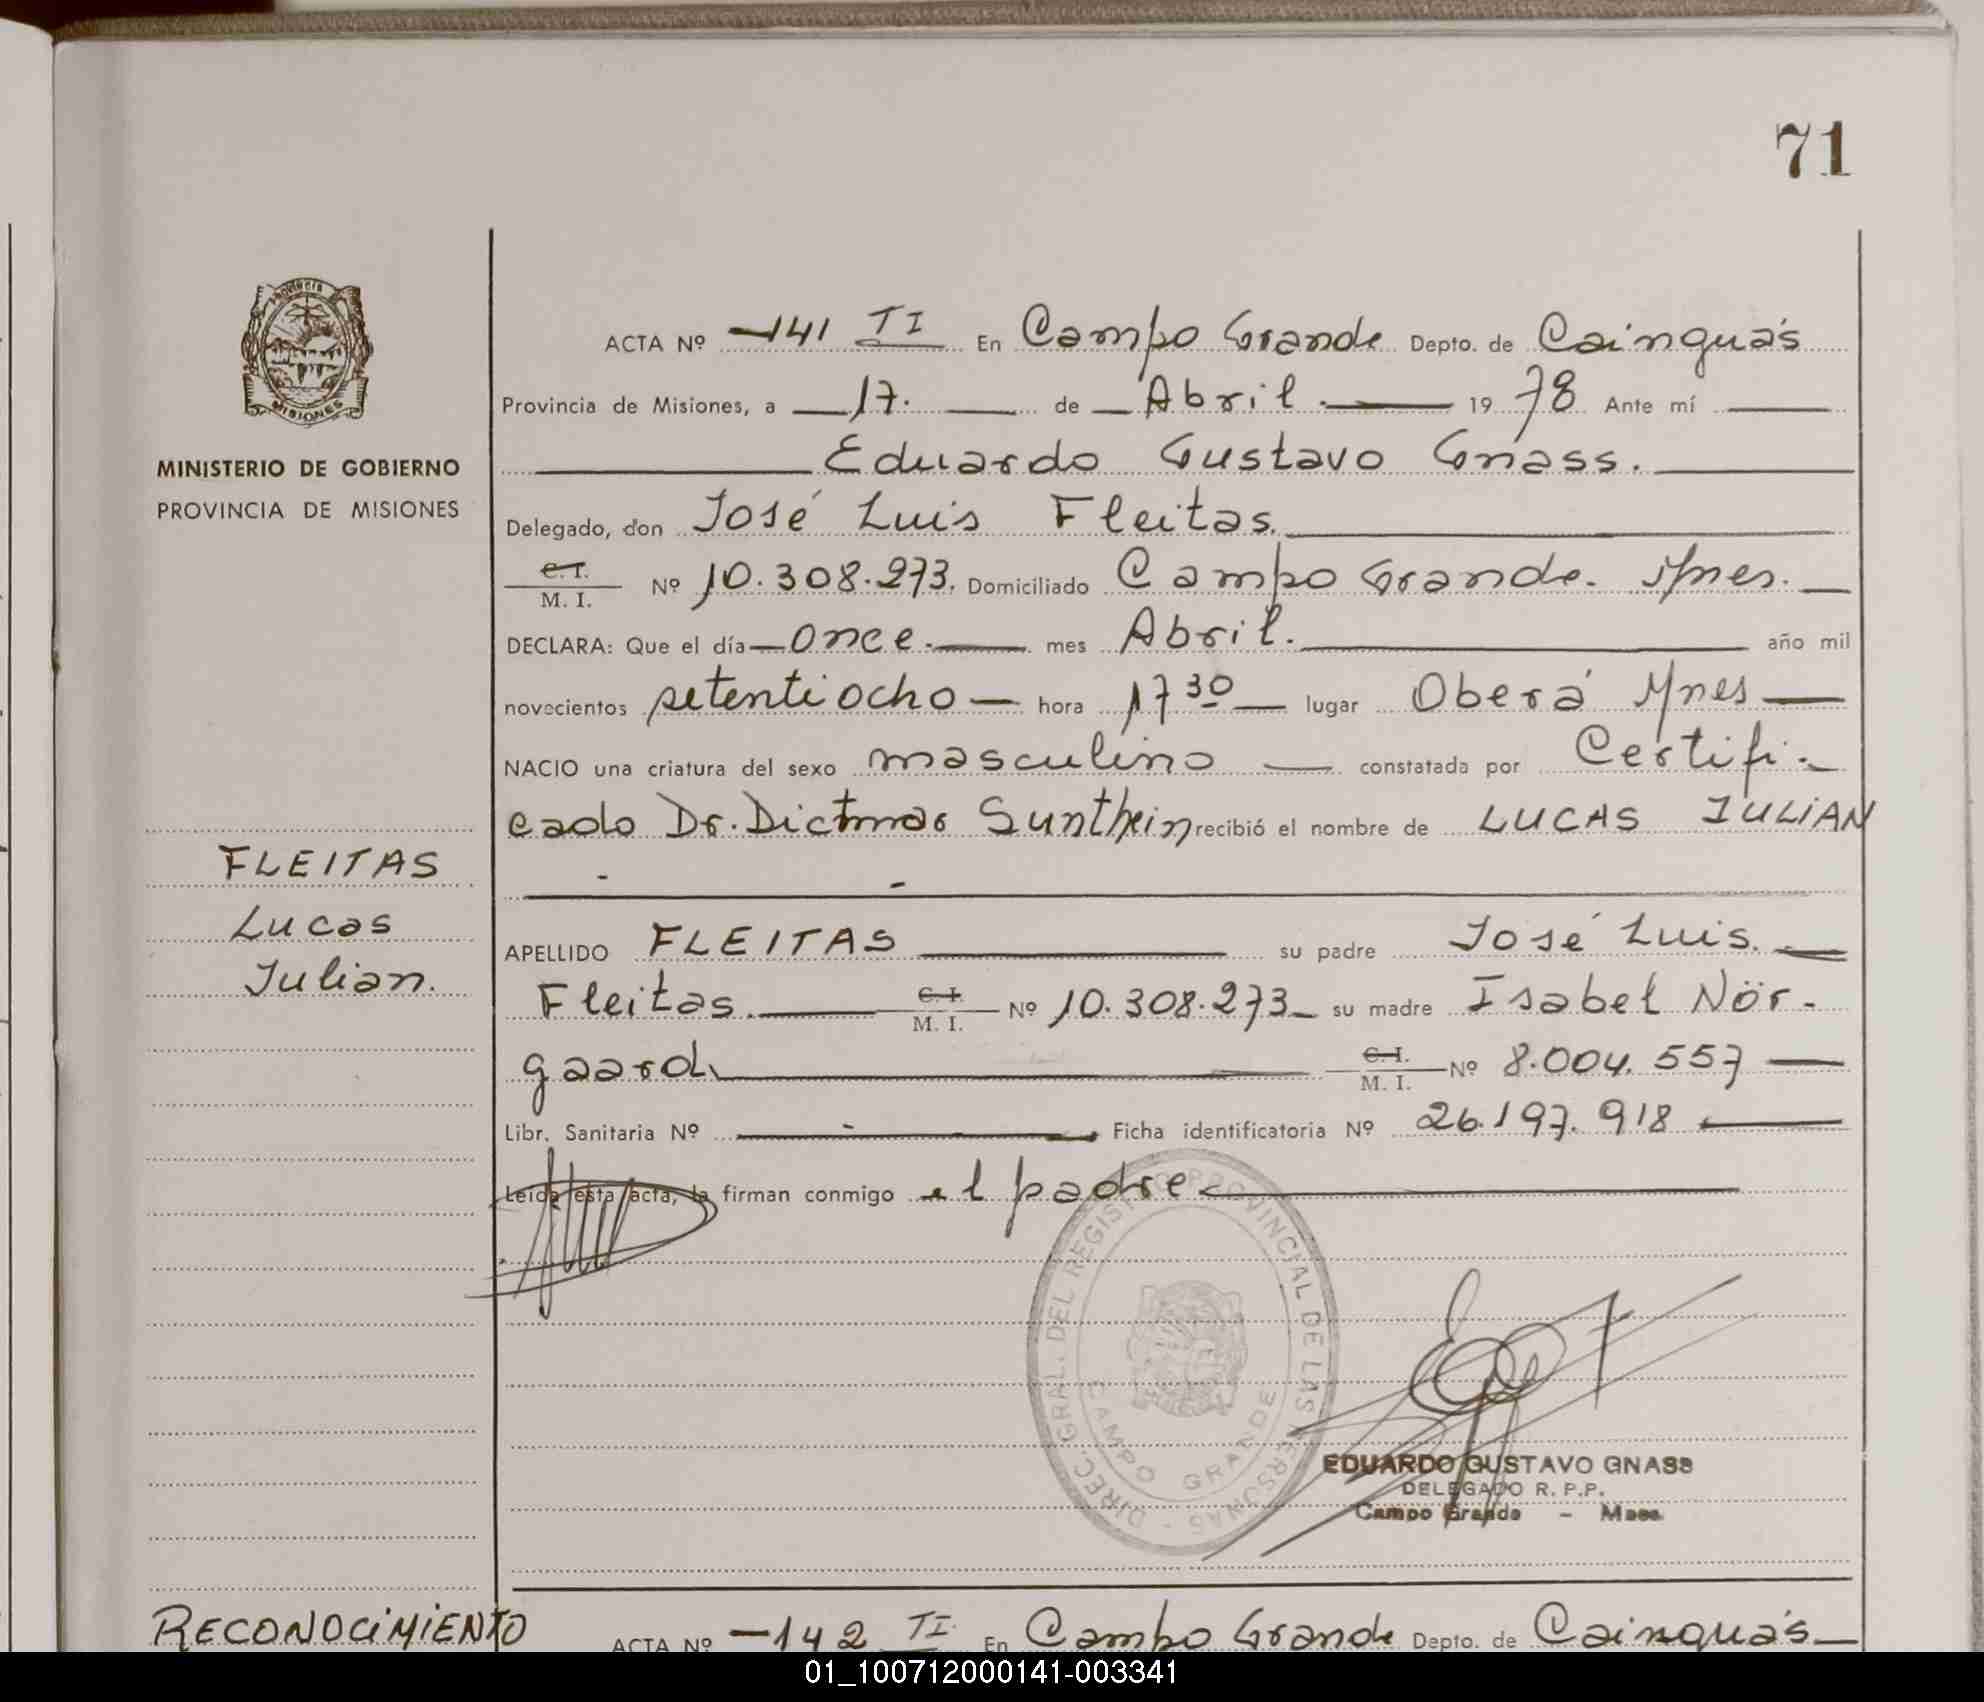 71
Provincia
MISIONES
MINISTERIO DE GOBIERNO
PROVINCIA DE MISIONES
FLEITAS
Lucas
Julian.
ACTA Nº 141 TI En Campo Grande Depto. de Cainguás
Provincia de Misiones, a 17. de Abril. 1978 Ante mí
Eduardo Gustavo Gnass.
Delegado, don José Luis Fleitas.
C. I.
M. I. Nº 10.308.273. Domiciliado Campo Grande. Mnes.
DECLARA: Que el día once. mes Abril. año mil
novecientos setentiocho hora 17 30 lugar Oberá Mnes
NACIO una criatura del sexo masculino constatada por Certifi-
cado Dr. Dictmar Sunthein recibió el nombre de LUCAS JULIAN
APELLIDO FLEITAS su padre José Luis.
Fleitas. C. I. M. I. Nº 10.308.273 su madre Isabel Nör-
gaard. C. I. M. I. Nº 8.004.557
Libr. Sanitaria Nº Ficha identificatoria Nº 26.197.918
Leida esta acta, la firman conmigo el padre
DIREC. GRAL. DEL REGISTRO PROVINCIAL DE LAS PERSONAS -
CAMPO GRANDE
EDUARDO GUSTAVO GNASS
DELEGADO R. P. P.
Campo Grande - Mnes.
RECONOCIMIENTO
ACTA Nº 142 TI. En Campo Grande Depto. de Cainguás
01_100712000141-003341